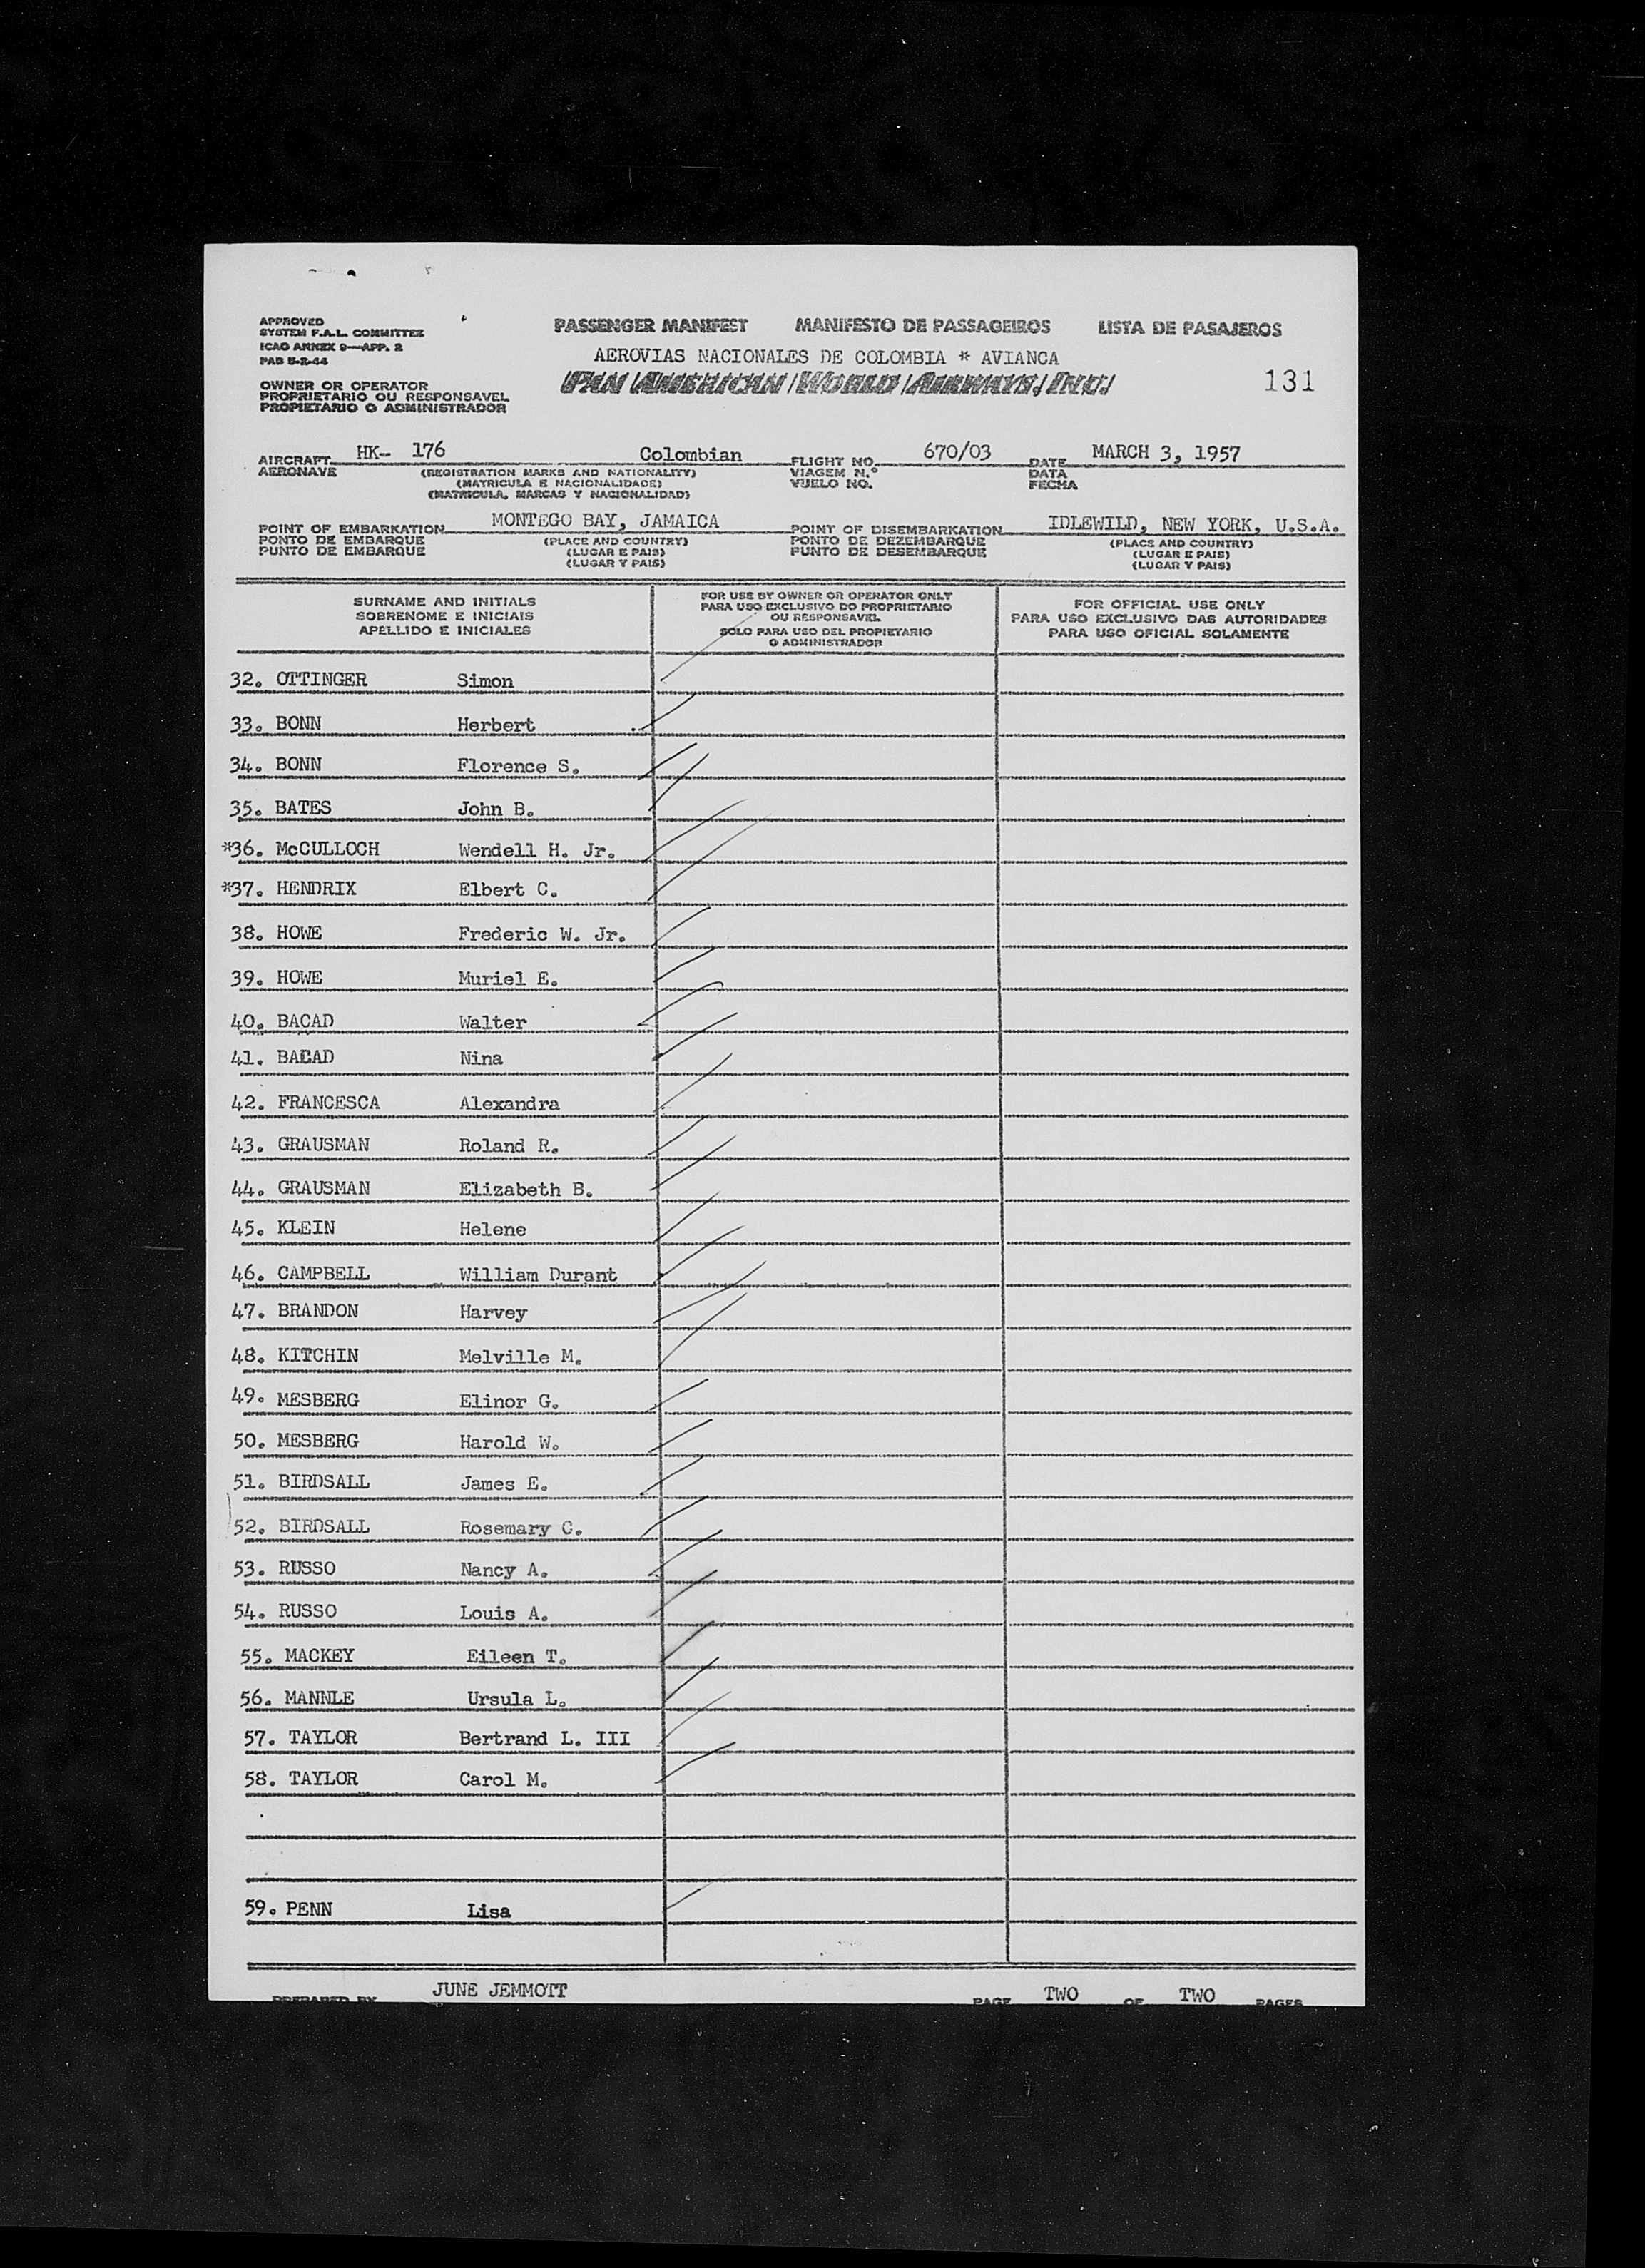 APPROVED
SYSTEM F.A.L. COMMITTEE
ICAO ANNEX 9—APP. 2
PAD 5-2-44
PASSENGER MANIFEST MANIFESTO DE PASSAGEIROS LISTA DE PASAJEROS
AEROVIAS NACIONALES DE COLOMBIA * AVIANCA
PAN AMERICAN WORLD AIRWAYS, INC.
131
OWNER OR OPERATOR
PROPRIETARIO OU RESPONSAVEL
PROPIETARIO O ADMINISTRADOR
AIRCRAFT HK-- 176 Colombian FLIGHT NO. 670/03 DATE MARCH 3, 1957
AERONAVE (REGISTRATION MARKS AND NATIONALITY) VIAGEM N.º DATA
(MATRICULA E NACIONALIDADE) VUELO NO. FECHA
(MATRICULA, MARCAS Y NACIONALIDAD)
POINT OF EMBARKATION MONTEGO BAY, JAMAICA POINT OF DISEMBARKATION IDLEWILD, NEW YORK, U.S.A.
PONTO DE EMBARQUE (PLACE AND COUNTRY) PONTO DE DEZEMBARQUE (PLACE AND COUNTRY)
PUNTO DE EMBARQUE (LUGAR E PAIS) PUNTO DE DESEMBARQUE (LUGAR E PAIS)
(LUGAR Y PAIS) (LUGAR Y PAIS)
SURNAME AND INITIALS
SOBRENOME E INICIAIS
APELLIDO E INICIALES
FOR USE BY OWNER OR OPERATOR ONLY
PARA USO EXCLUSIVO DO PROPRIETARIO
OU RESPONSAVEL
SOLO PARA USO DEL PROPIETARIO
O ADMINISTRADOR
FOR OFFICIAL USE ONLY
PARA USO EXCLUSIVO DAS AUTORIDADES
PARA USO OFICIAL SOLAMENTE
32. OTTINGER Simon
33. BONN Herbert
34. BONN Florence S.
35. BATES John B.
*36. McCULLOCH Wendell H. Jr.
*37. HENDRIX Elbert C.
38. HOWE Frederic W. Jr.
39. HOWE Muriel E.
40. BACAD Walter
41. BACAD Nina
42. FRANCESCA Alexandra
43. GRAUSMAN Roland R.
44. GRAUSMAN Elizabeth B.
45. KLEIN Helene
46. CAMPBELL William Durant
47. BRANDON Harvey
48. KITCHIN Melville M.
49. MESBERG Elinor G.
50. MESBERG Harold W.
51. BIRDSALL James E.
52. BIRDSALL Rosemary C.
53. RUSSO Nancy A.
54. RUSSO Louis A.
55. MACKEY Eileen T.
56. MANNLE Ursula L.
57. TAYLOR Bertrand L. III
58. TAYLOR Carol M.
59. PENN Lisa
PREPARED BY JUNE JEMMOTT PAGE TWO OF TWO PAGES